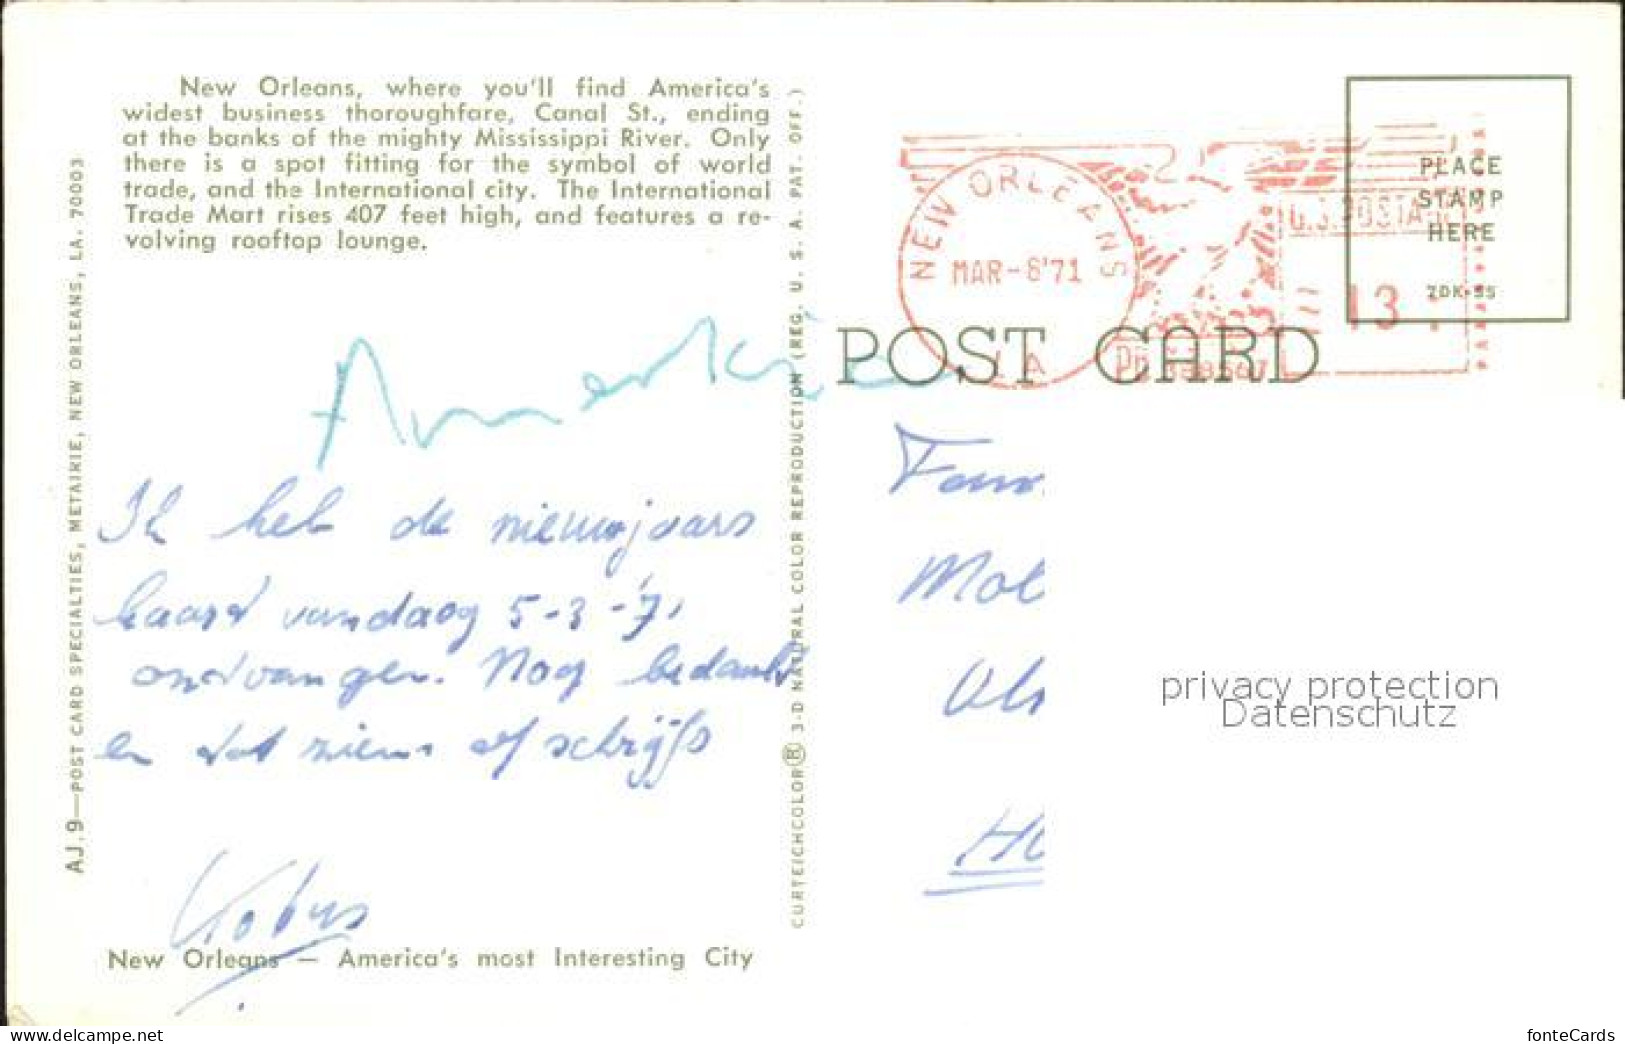 New Orleans, where you'll find America's
widest business thoroughfare, Canal St., ending
at the banks of the mighty Mississippi River. Only
there is a spot fitting for the symbol of world
trade, and the International city. The International
Trade Mart rises 407 feet high, and features a re-
volving rooftop lounge.
AJ.9—POST CARD SPECIALTIES, METAIRIE, NEW ORLEANS, LA. 70003
Amerika
Ik heb de nieuwjaars
kaart vandaag 5-3-'71
ontvangen. Nog bedankt
en tot ziens of schrijfs
Kobus
New Orleans — America's most Interesting City
CURTEICHCOLOR® 3-D NATURAL COLOR REPRODUCTION (REG. U. S. A. PAT. OFF.)
NEW ORLEANS
MAR-6'71
LA
U.S. POSTAGE
13
PLACE
STAMP
HERE
7DK-55
POST CARD
Fam.
Mol
HO
privacy protection
Datenschutz
www.delcampe.net
fonteCards